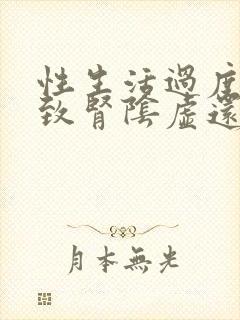 性生活過度
致腎陰虛還
月本無光